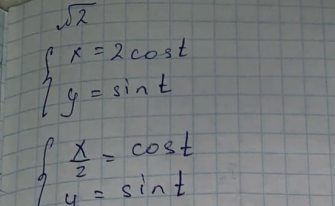 √2
{ x = 2cost
y = sint
{ x/2 = cost
y = sint